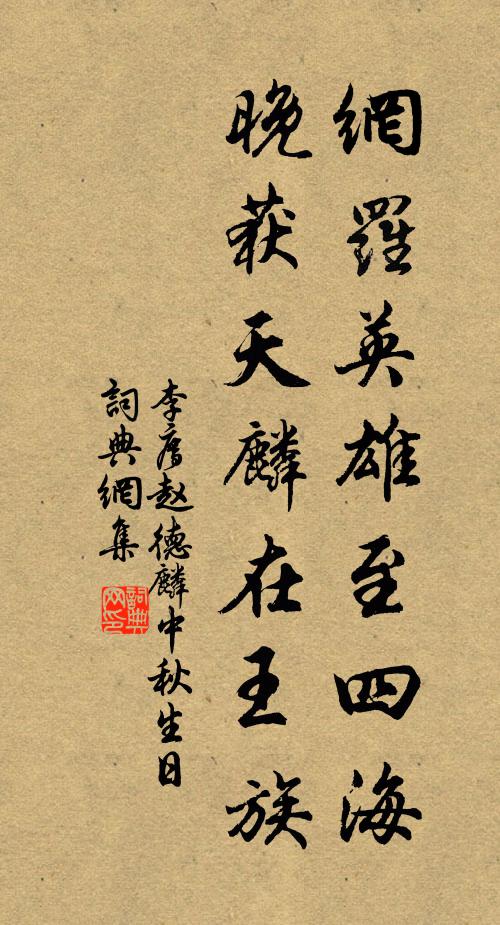 網羅英雄至四海
晚获天麟在王族
李廌赵德麟中秋生日
詞典網集
詞典
网印